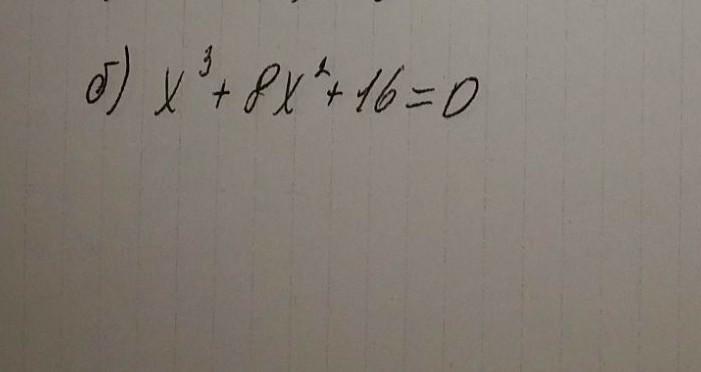 б) x³ + 8x² + 16 = 0